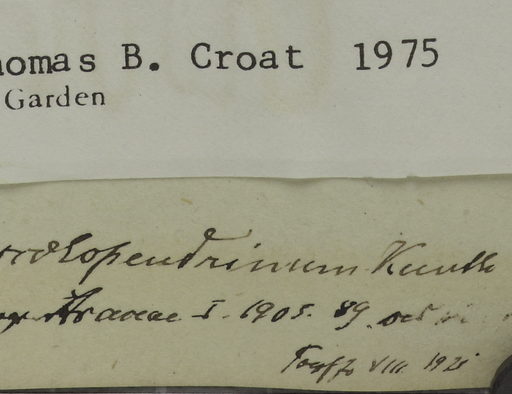 homas B. Croat 1975
Garden
scolopendrinum Kunth
Araceae I. 1905. 89.
VIII. 192